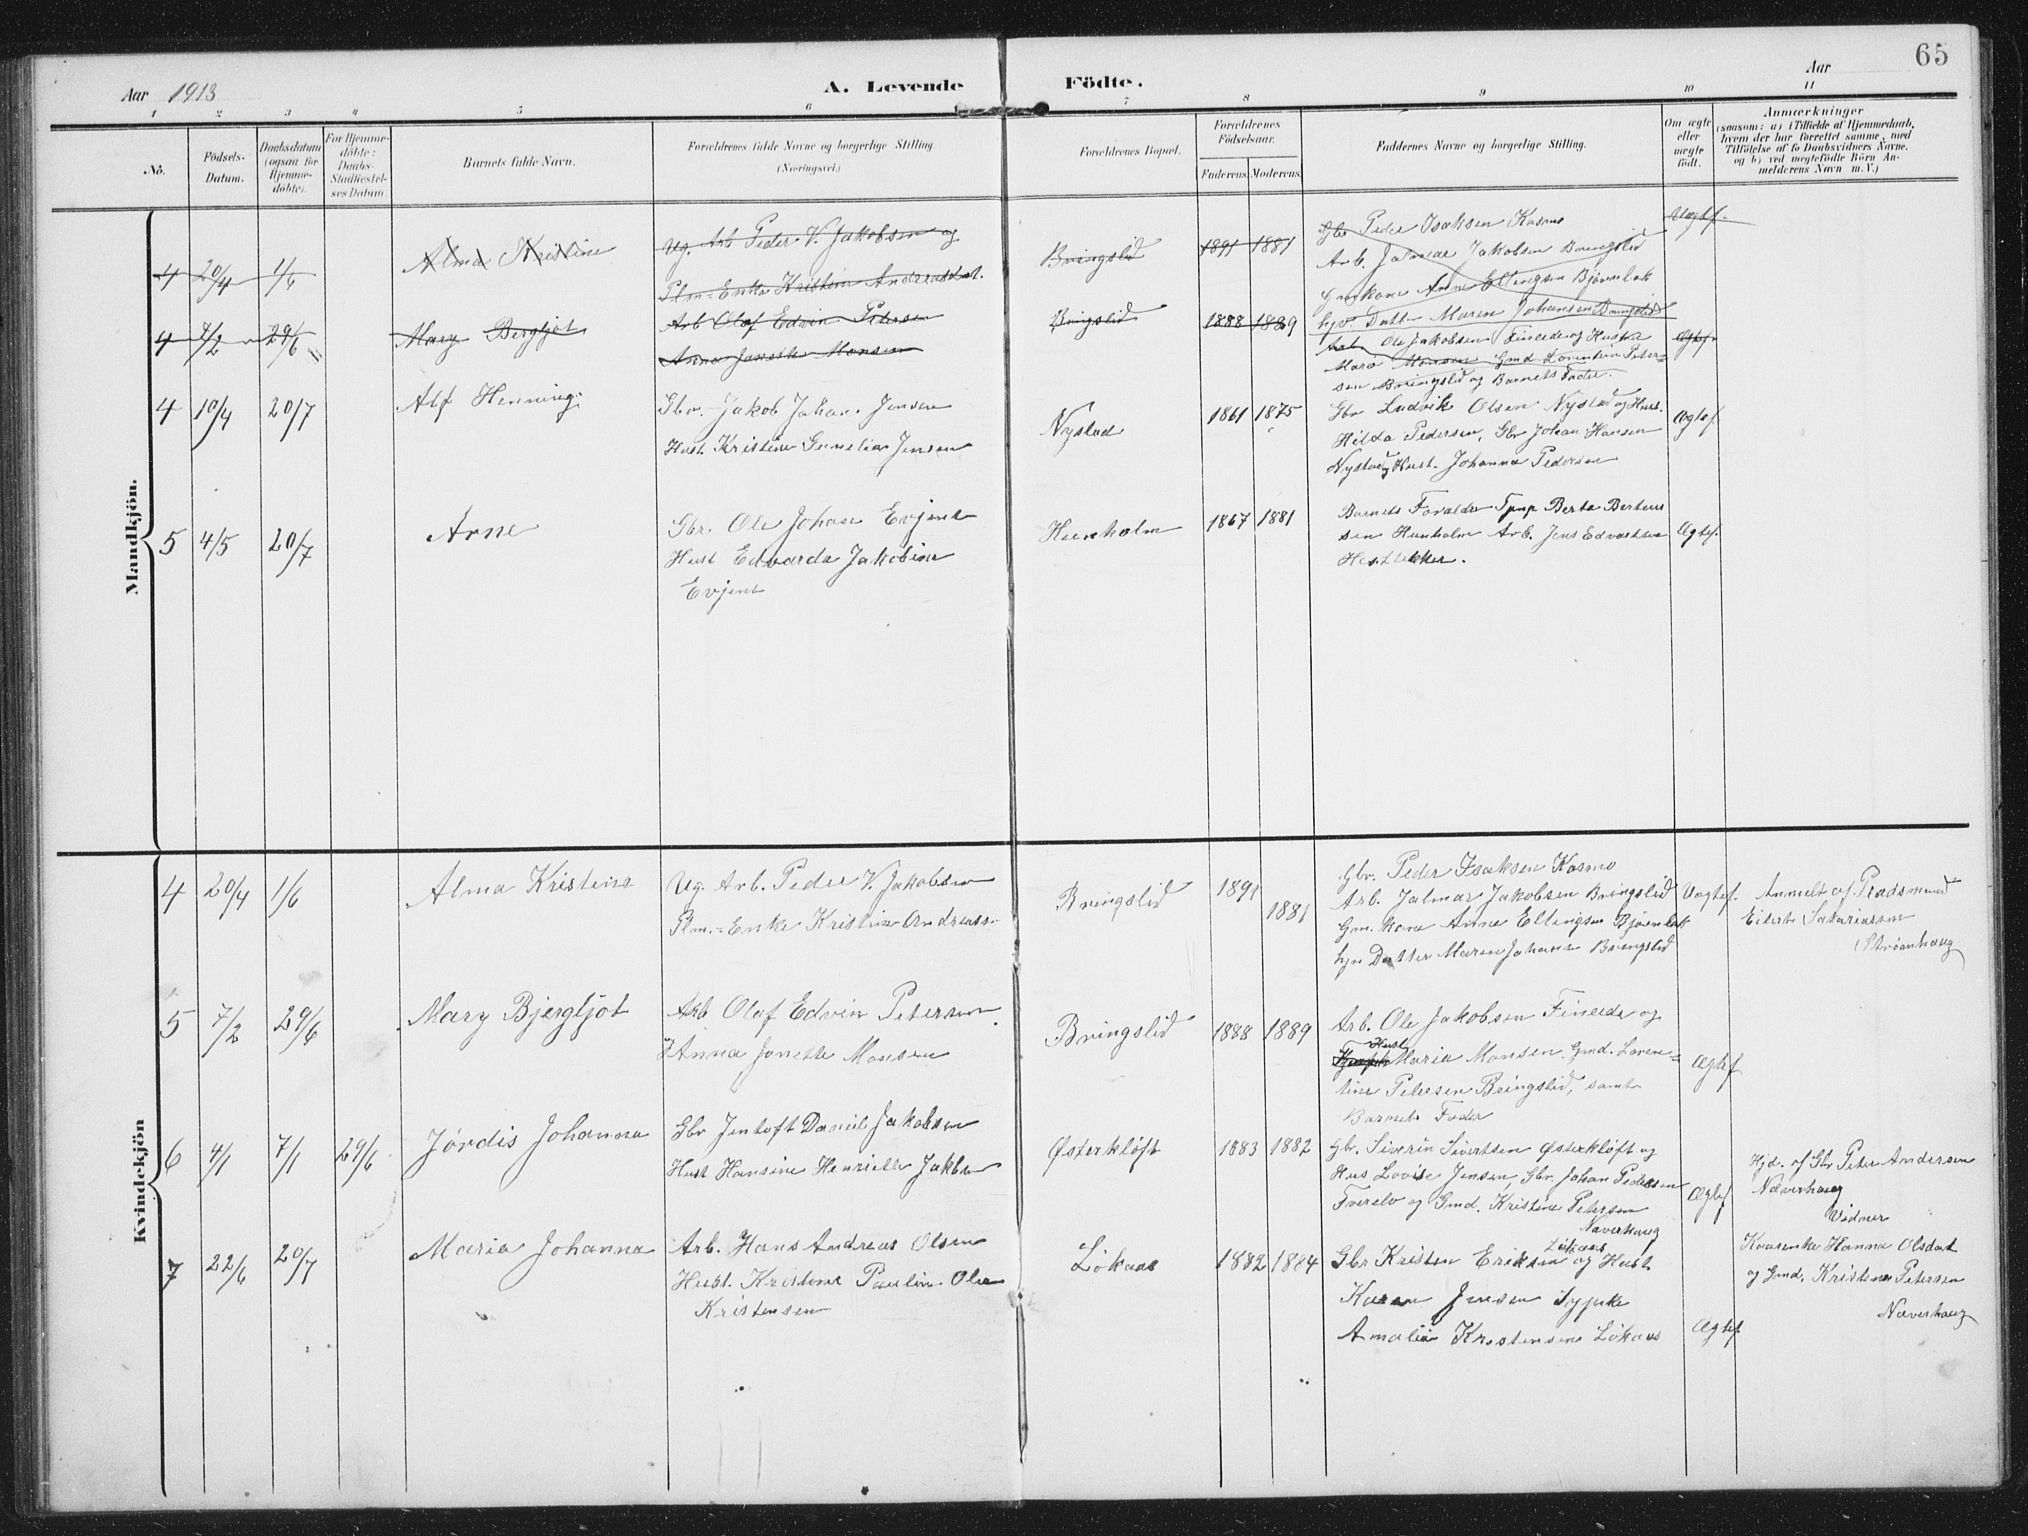 65
Aar 1913
A. Levende
Fødte.
Aar
1 2 3 4 5 6 7 8 9 10 11
No.
Födsels-
Datum.
Daabsdatum
(ogsaa for
Hjemme-
döbte).
For Hjemme-
döbte:
Daabs-
Stadfæstel-
ses Datum.
Barnets fulde Navn.
Forældrenes fulde Navne og borgerlige Stilling.
(Næringsvei.)
Forældrenes Bopæl.
Forældrenes
Födselsaar.
Faderens. Moderens.
Faddernes Navne og borgerlige Stilling.
Om ægte
eller
uægte
født.
Anmærkninger
(saasom: a) i Tilfælde af Hjemmedaab,
hvem der har forrettet samme, med
Tilföielse af to Daabsvidners Navne,
og b) ved uægtefödte Börn An-
melderens Navn m. V.)
Mandkjön.
4 20/4 1/6 Alma Kristine
Ug. Arb Peder V. Jakobsen og
Plm-Enke Kristine Andreasdat.
Bringslid 1891 1881
Gbr Peder Isaksen Kosmo
Arb. Jalmar Jakobsen Bringslid
Gmkone Anne Ellingsen Bjørnbak
hyr. Datt. Maren Johansen Bringslid
Uægtef.
4 7/2 29/6 Mary Bergljot
Arb Olaf Edvin Petersen
Anna Janette Monsen
Bringslid 1888 1889
Arb. Ole Jakobsen Fineide og Hustr
Maria Monsen Gmd Lorentin Peter-
sen Bringslid og Barnets Fader.
Ægtef.
4 10/4 20/7 Alf Henning
Gbr. Jakob Johan Jensen
Hust. Kristine Cornelia Jensen
Nystad 1861 1875
Gbr Ludvik Olsen Nystad og Hust.
Hilda Pedersen, Gbr Johan Hansen
Nystad og Hust. Johanna Pedersen
Ægtef.
5 4/5 20/7 Arne
Gbr. Ole Johan Evjent
Hust Edvarda Jakobine
Evjent
Hunholm 1867 1881
Barnets Foraldre Tjnp Berta Berteus
sen Hunholm Arb. Jens Edvartsen
Hestbekken.
Ægtef.
Kvindekjön
4 20/4 1/6 Alma Kristine
Ug. Arb. Peder V. Jakobsen
Plm.-Enke Kristine Andreass-
Bringslid 1891 1881
Gbr. Peder Isaksen Kosmo
Arb. Jalmar Jakobsen Bringslid
Gm. kone Anne Ellingsen Bjørnbak
hyr Datter Maren Johansen Bringslid
Uægtef.
Anmelt af Pladsmand
Eilert Sakariassen
Strømhaug
5 7/2 29/6 Mary Bjergljot
Arb Olaf Edvin Petersen
Anna Janette Monsen
Bringslid 1888 1889
Arb. Ole Jakobsen Fineide og
Hust
Maria Monsen. Gmd. Loren-
tine Petersen Bringslid, samt
Barnets Fader
Ægtef
6 4/1 7/1 29/6 Jørdis Johanna
Gbr Jentoft Daniel Jakobsen
Hust Hansine Henriette Jakbsen
Østerkløft 1883 1882
Gbr. Siverin Sivertsen Østerkløft og
Hus Lovise Jensen, Gbr. Johan Pedersen
Tverelv og Gmd. Kristine Petersen
Naverhaug
Ægtef
Hjd. af Gbr Peter Andersen
Naverhaug
Vidner
Kaarenke Hanna Olsdat
og Gmd. Kristine Petersen
Naverhaug
7 22/6 20/7 Maria Johanna
Arb. Hans Andreas Olsen
Hust. Kristine Pauline Olsen
Kristensen
Løkaas 1882 1884
Løkaas
Gbr Kristen Eriksen og Hust.
Karen Jensen Typike
Amalie Kristensen Løkaas
Ægtef